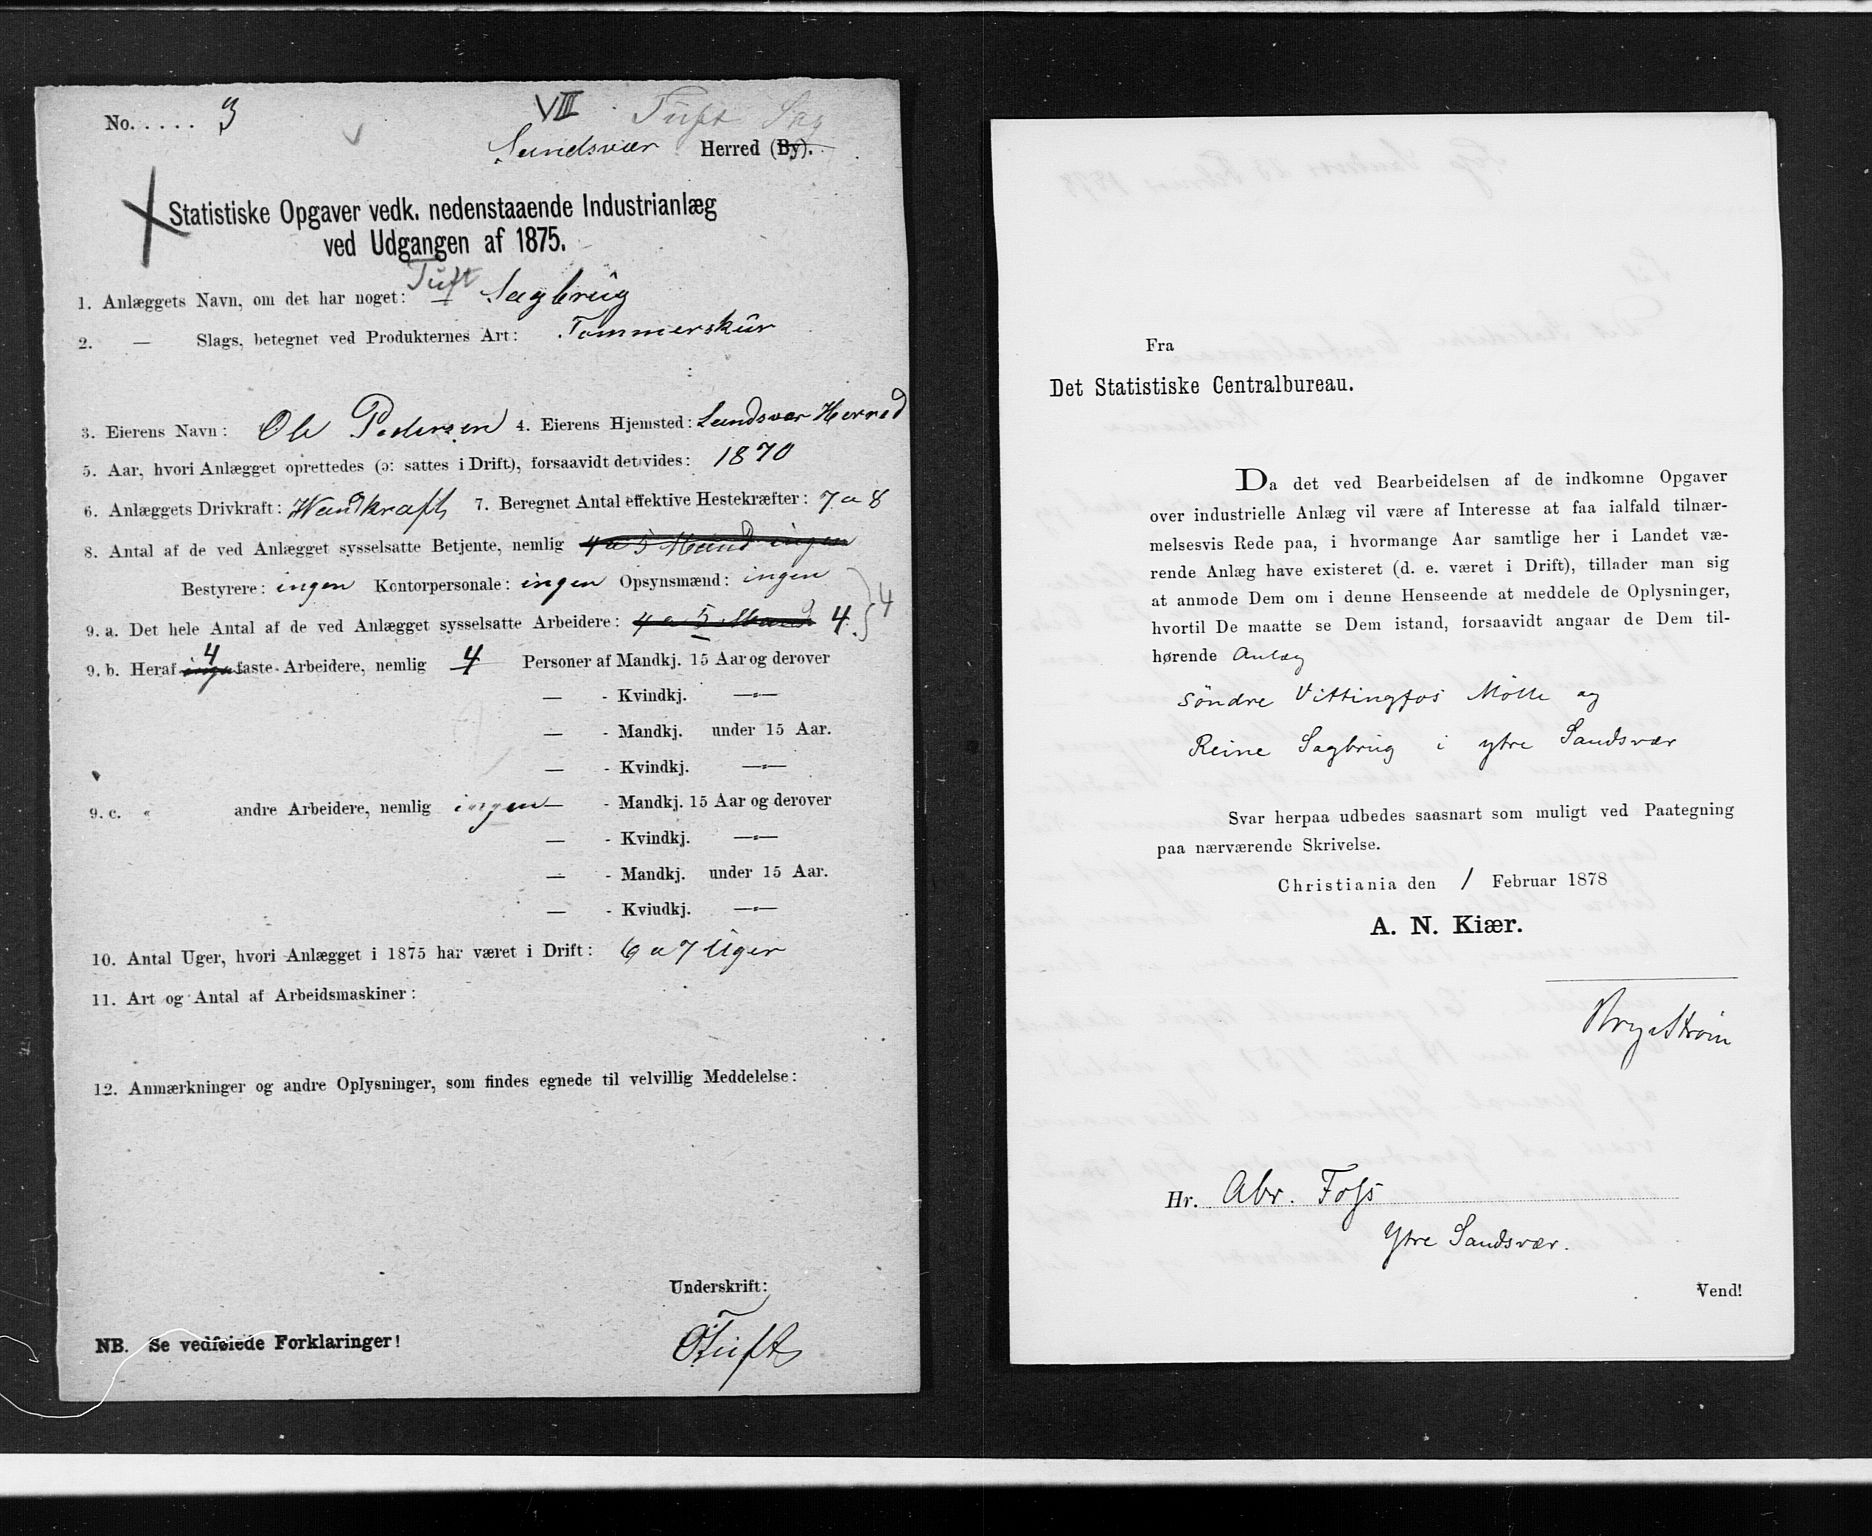 No. .... 3
VIII Tuft Sag
Sandsvær Herred (By).
Statistiske Opgaver vedk. nedenstaaende Industrianlæg
ved Udgangen af 1875.
1. Anlæggets Navn, om det har noget: Tuft Sagbrug
2. — Slags, betegnet ved Produkternes Art: Tømmerskur
3. Eierens Navn: Ole Pedersen 4. Eierens Hjemsted: Sandsvær Herred
5. Aar, hvori Anlægget oprettedes (ɔ: sattes i Drift), forsaavidt det vides: 1870
6. Anlæggets Drivkraft: Vandkraft 7. Beregnet Antal effektive Hestekræfter: 7 a 8
8. Antal af de ved Anlægget sysselsatte Betjente, nemlig 4 a 5 Mand ingen
Bestyrere: ingen Kontorpersonale: ingen Opsynsmænd: ingen
9. a. Det hele Antal af de ved Anlægget sysselsatte Arbeidere: 4 a 5 Mand 4. } 4
9. b. Heraf ingen 4 faste Arbeidere, nemlig 4 Personer af Mandkj. 15 Aar og derover
— - Kvindkj. —„—
— - Mandkj. under 15 Aar.
— - Kvindkj. —„—
9. c. „ andre Arbeidere, nemlig ingen — - Mandkj. 15 Aar og derover
— - Kvindkj. —„—
— - Mandkj. under 15 Aar.
— - Kviudkj. —„—
10. Antal Uger, hvori Anlægget i 1875 har været i Drift: 6 a 7 Uger
11. Art og Antal af Arbeidsmaskiner:
12. Anmærkninger og andre Oplysninger, som findes egnede til velvillig Meddelelse:
Underskrift:
NB. Se vedføiede Forklaringer!
OTuft
Fra
Det Statistiske Centralbureau.
Da det ved Bearbeidelsen af de indkomne Opgaver
over industrielle Anlæg vil være af Interesse at faa ialfald tilnær-
melsesvis Rede paa, i hvormange Aar samtlige her i Landet væ-
rende Anlæg have existeret (d. e. været i Drift), tillader man sig
at anmode Dem om i denne Henseende at meddele de Oplysninger,
hvortil De maatte se Dem istand, forsaavidt angaar de Dem til-
hørende Anlæg
Søndre Vittingfos Mølle og
Reine Sagbrug i ytre Sandsvær
Svar herpaa udbedes saasnart som muligt ved Paategning
paa nærværende Skrivelse.
Christiania den 1 Februar 1878
A. N. Kiær.
Hr. Abr. Foss
Ytre Sandsvær.
Vend!